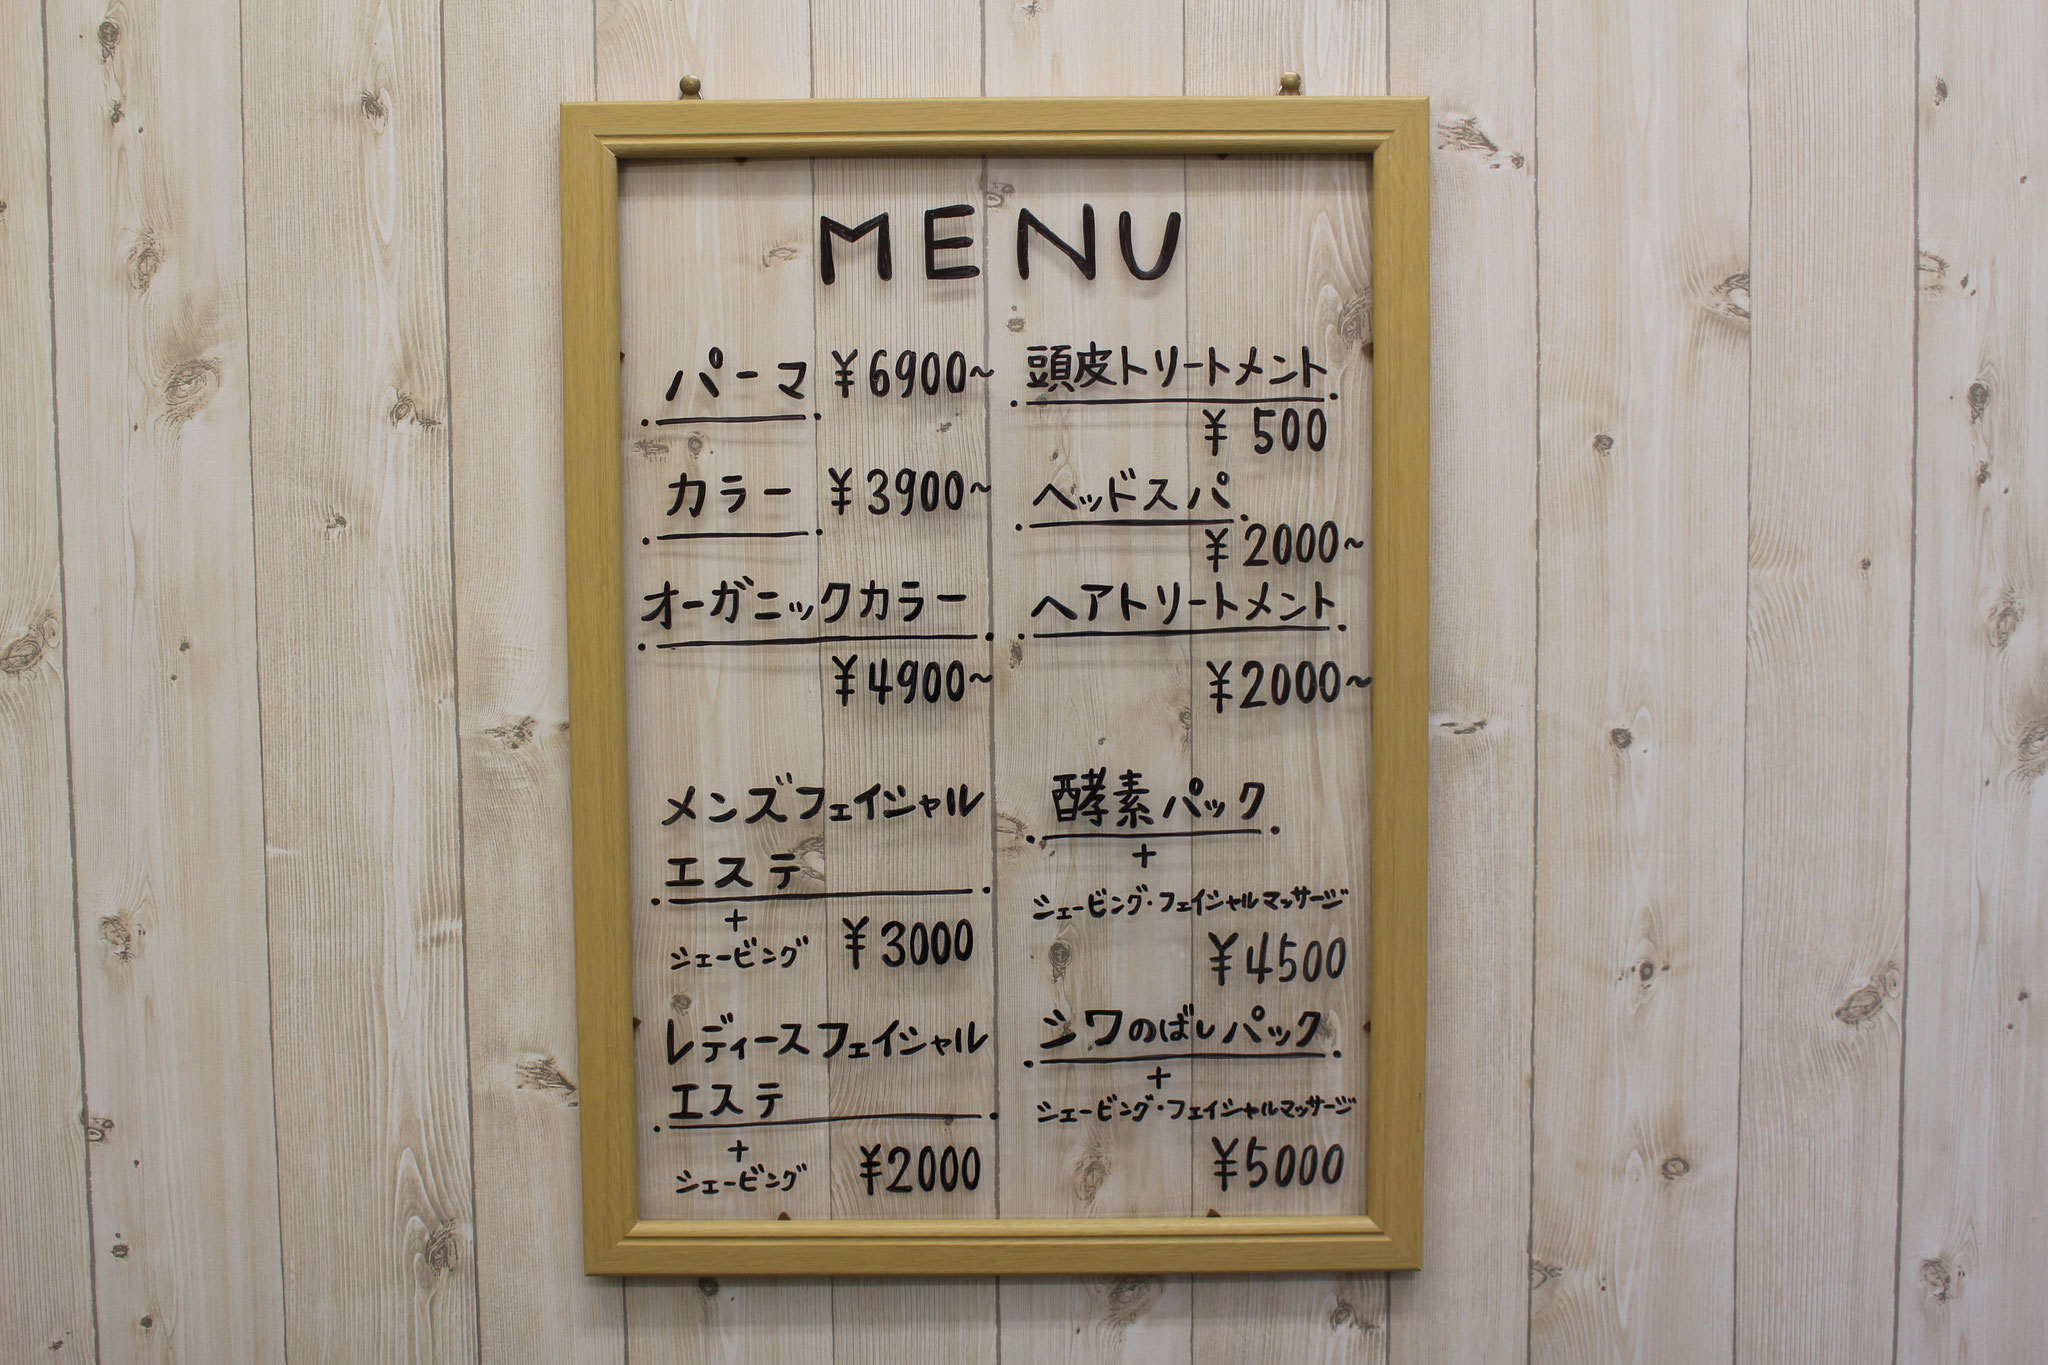 MENU
パーマ ¥6900~
カラー ¥3900~
オーガニックカラー
¥4900~
メンズフェイシャル
エステ
+
シェービング ¥3000
レディースフェイシャル
エステ
+
シェービング ¥2000
頭皮トリートメント
¥500
ヘッドスパ
¥2000~
ヘアトリートメント
¥2000~
酵素パック
+
シェービング・フェイシャルマッサージ
¥4500
シワのばしパック
+
シェービング・フェイシャルマッサージ
¥5000